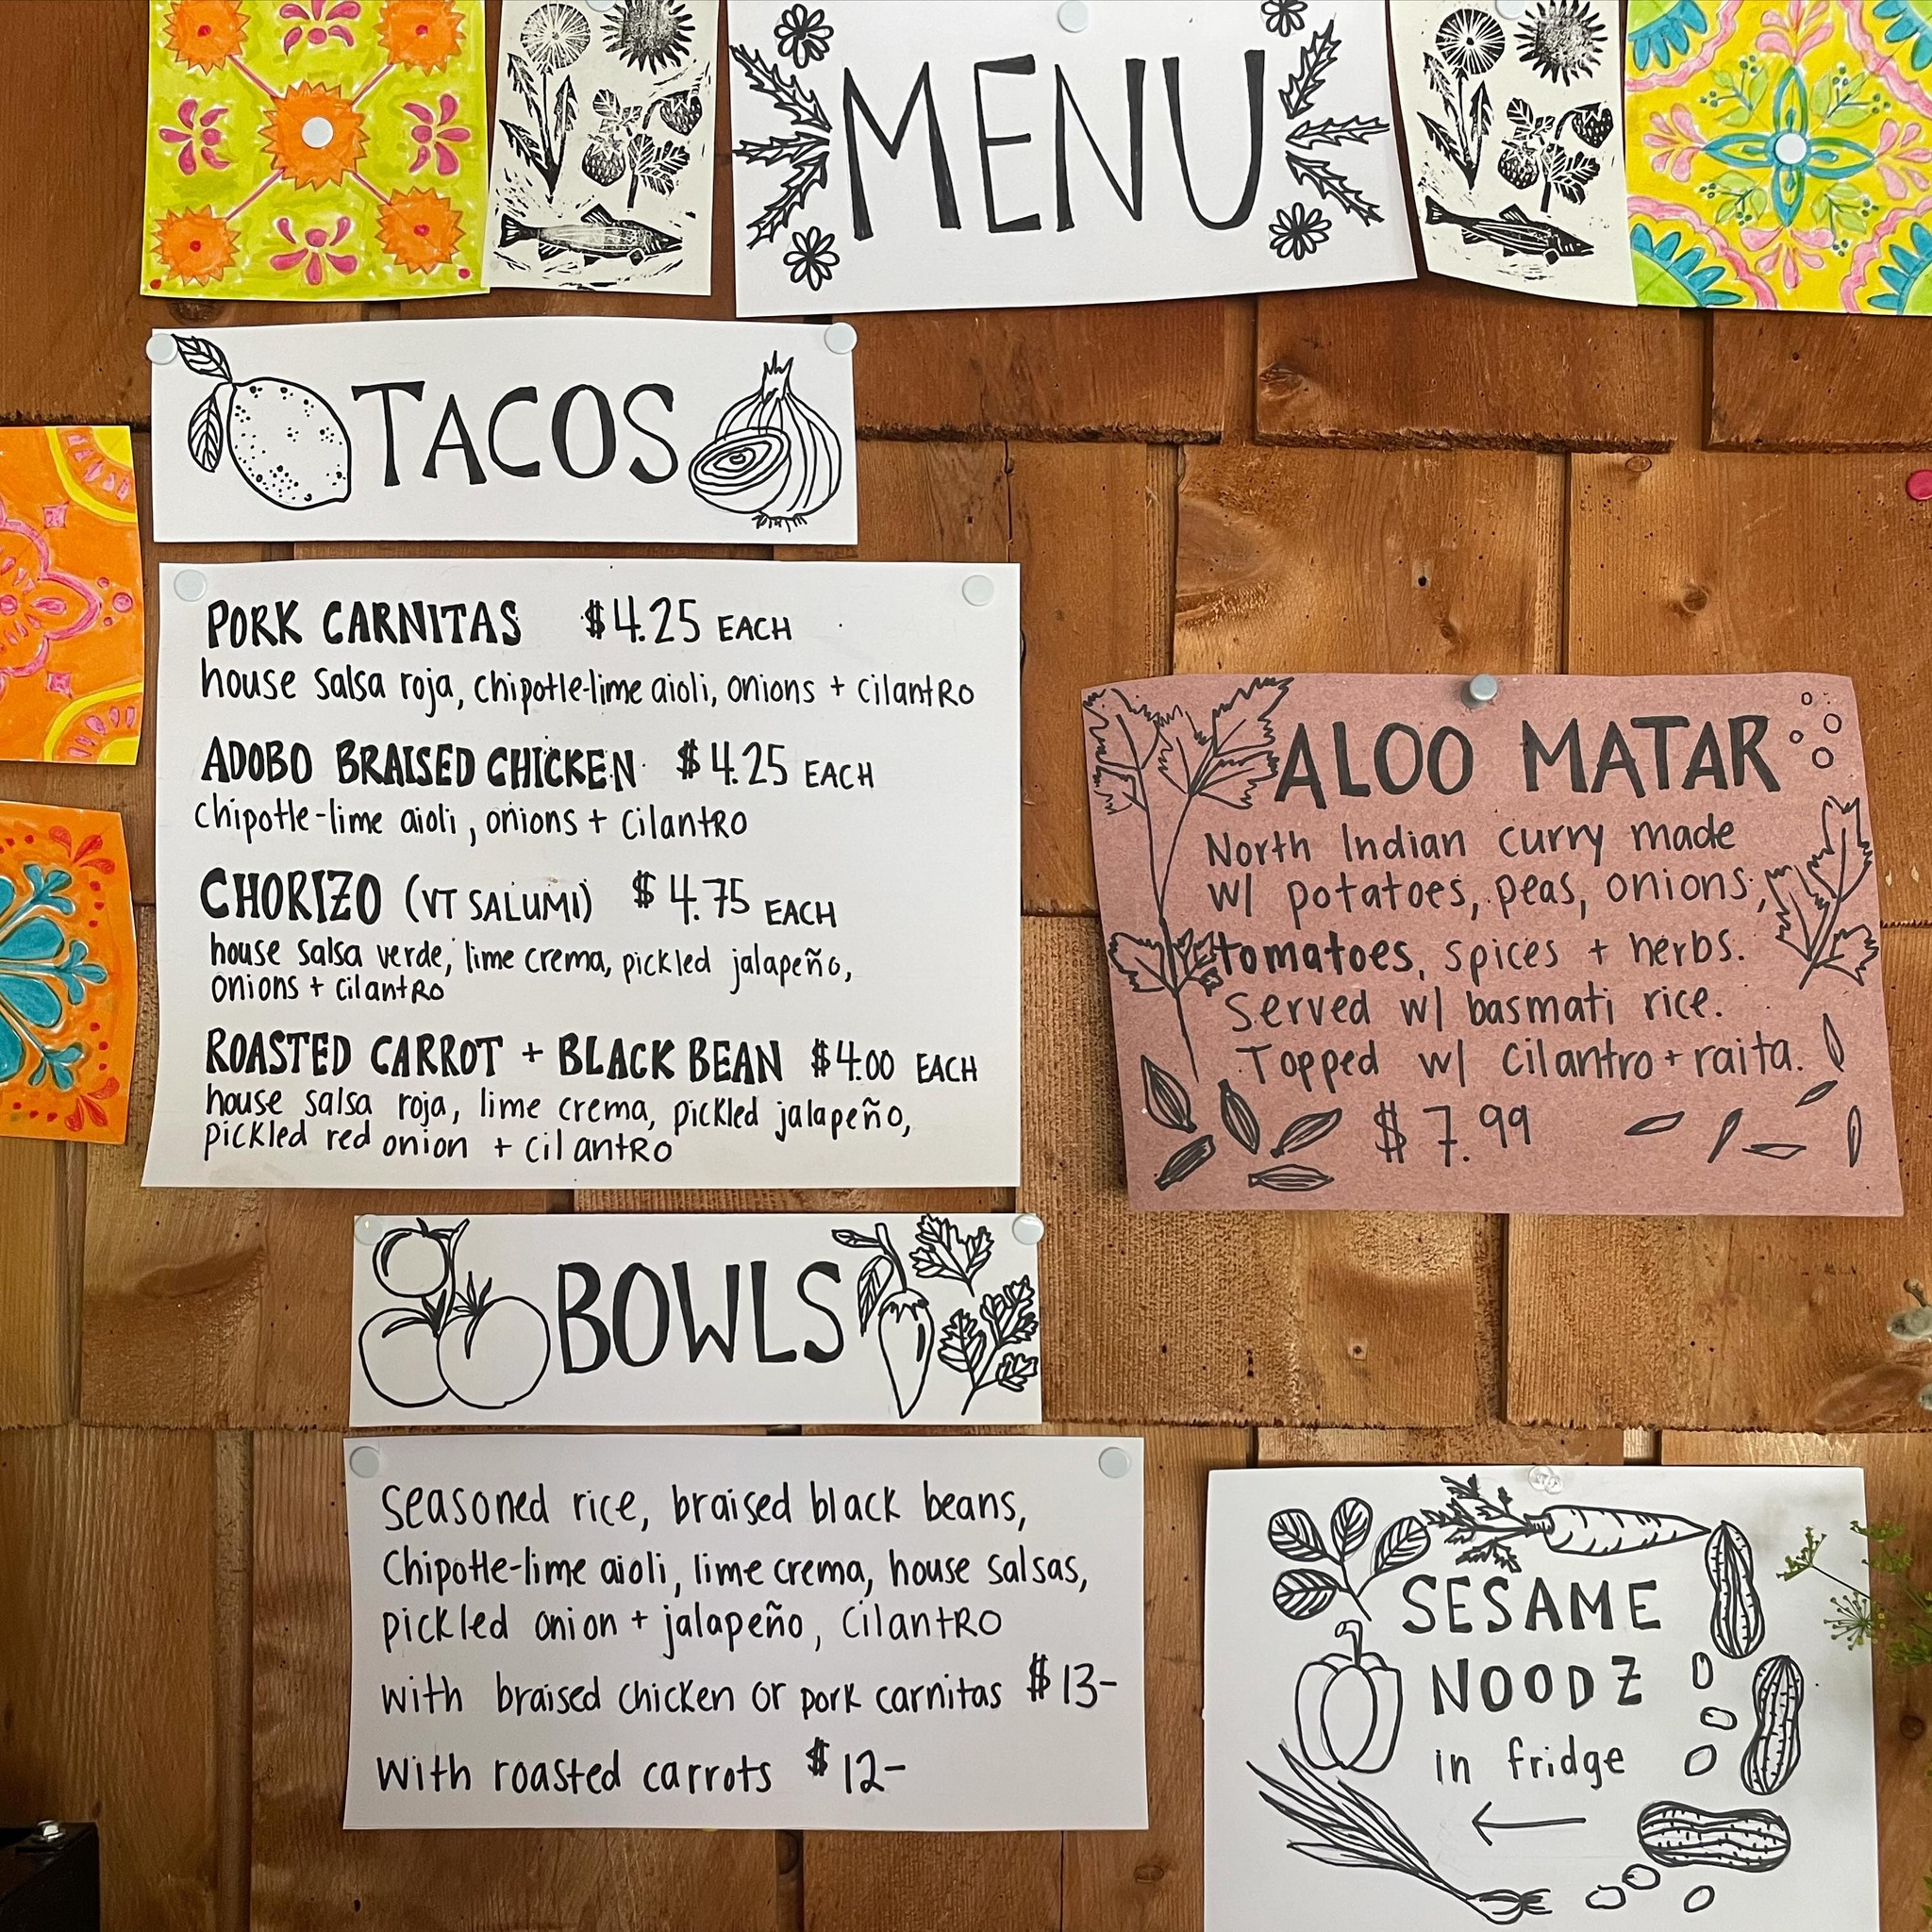 MENU
TACOS
PORK CARNITAS $4.25 EACH
house salsa roja, chipotle-lime aioli, onions + cilantro
ADOBO BRAISED CHICKEN $4.25 EACH
chipotle-lime aioli, onions + cilantro
CHORIZO (VT SALUMI) $4.75 EACH
house salsa verde, lime crema, pickled jalapeño,
onions + cilantro
ROASTED CARROT + BLACK BEAN $4.00 EACH
house salsa roja, lime crema, pickled jalapeño,
pickled red onion + cilantro
BOWLS
Seasoned rice, braised black beans,
Chipotle-lime aioli, lime crema, house salsas,
pickled onion + jalapeño, cilantro
with braised chicken or pork carnitas $13-
with roasted carrots $12-
ALOO MATAR
North Indian curry made
w/ potatoes, peas, onions,
tomatoes, spices + herbs.
Served w/ basmati rice.
Topped w/ cilantro + raita.
$7.99
SESAME
NOODZ
in fridge